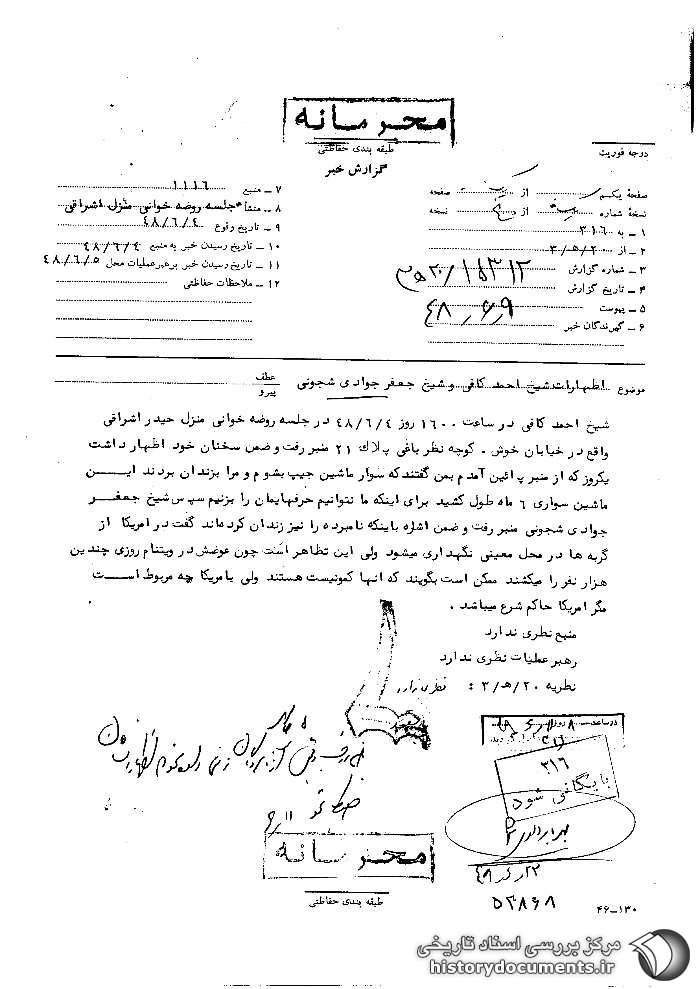 محرمانه
طبقه بندی حفاظتی
گزارش خبر
درجه فوریت
صفحهٔ یکم از صفحه
نسخهٔ شماره از نسخه
۱ – به ۳۱۶
۲ – از ۲۰/ه/۳
۳ – شماره گزارش
۴ – تاریخ گزارش
۵ – پیوست ۴۸/۶/۹
۶ – گیرندگان خبر
۷ – منبع ۱۱۱۶
۸ – منشأ جلسه روضه خوانی منزل اشراقی
۹ – تاریخ وقوع ۴۸/۶/۴
۱۰ – تاریخ رسیدن خبر به منبع ۴۸/۶/۴
۱۱ – تاریخ رسیدن خبر برهبر عملیات محل ۴۸/۶/۵
۱۲ – ملاحظات حفاظتی
موضوع اظهارات شیخ احمد کافی و شیخ جعفر جوادی شجونی
عطف
پیرو
شیخ احمد کافی در ساعت ۱۶۰۰ روز ۴۸/۶/۴ در جلسه روضه خوانی منزل حیدر اشراقی
واقع در خیابان خوش . کوچه نظر باغی پلاک ۲۱ منبر رفت و ضمن سخنان خود اظهار داشت
یکروز که از منبر پائین آمدم بمن گفتند که سوار ماشین جیپ بشوم و مرا بزندان بردند ایـن
ماشین سواری ۶ ماه طول کشید برای اینکه ما نتوانیم حرفهایمان را بزنیم سپس شیخ جعفـر
جوادی شجونی منبر رفت و ضمن اشاره باینکه نامبرده را نیز زندان کرده‌اند گفت در امریکا از
گربه ها در محل معینی نگهداری میشود ولی این تظاهر است چون عوضش در ویتنام روزی چندین
هزار نفر را میکشند ممکن است بگویند که آنها کمونیست هستند ولی بامریکا چه مربوط اسـت
مگر امریکا حاکم شرع میباشد .
منبع نظری ندارد
رهبر عملیات نظری ندارد
نظریه ۲۰/ه/۳ : نظری ندارد
در ساعت روز
۳۱۶
بایگانی شود
بهره‌برداری
محرمانه
طبقه بندی حفاظتی
۵۳۸۶۸
۴۶–۱۳۰
مرکز بررسی اسناد تاریخی
historydocuments.ir